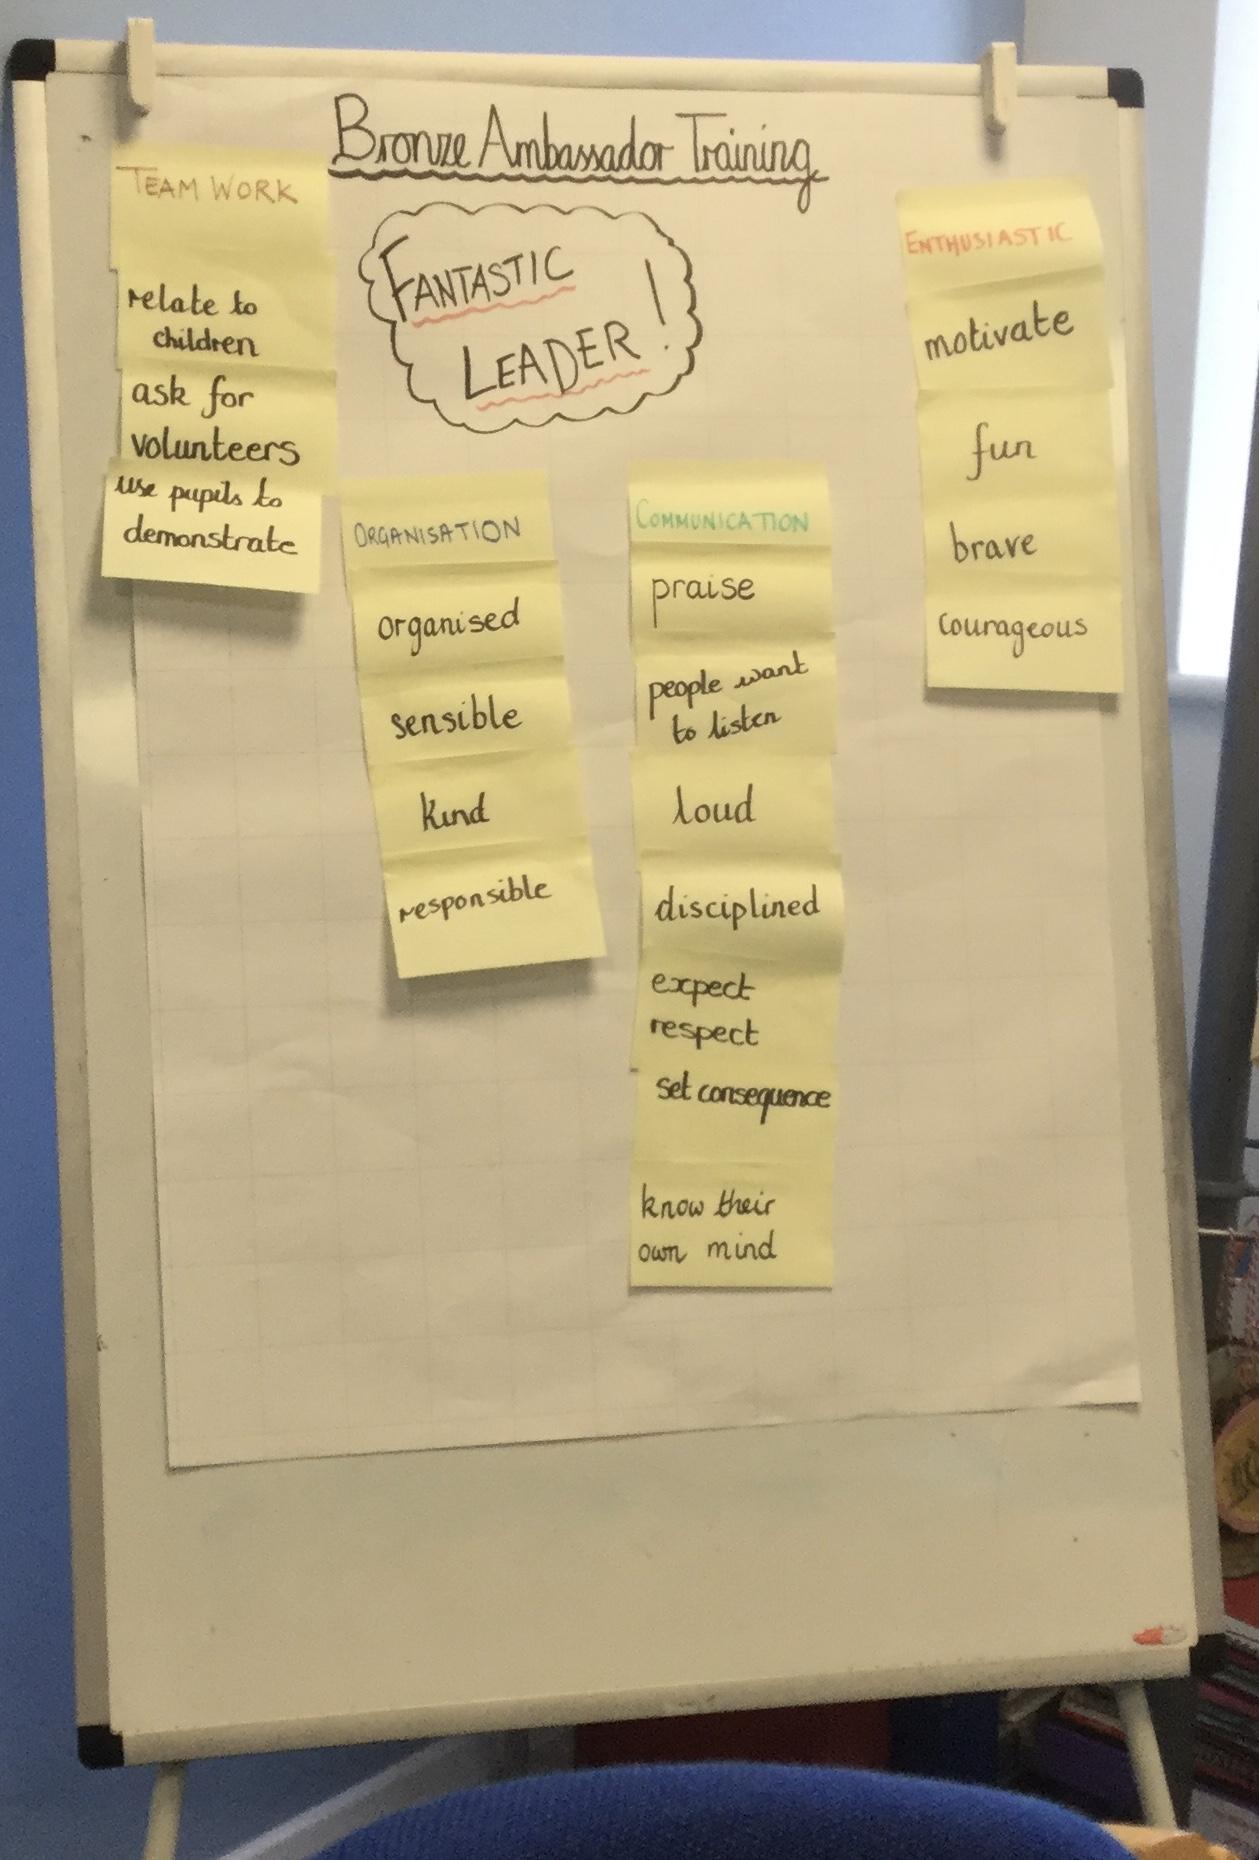 Bronze Ambassador Training
FANTASTIC
LEADER!
TEAM WORK
relate to
children
ask for
volunteers
use pupils to
demonstrate
ORGANISATION
organised
sensible
kind
responsible
COMMUNICATION
praise
people want
to listen
loud
disciplined
expect
respect
set consequence
know their
own mind
ENTHUSIASTIC
motivate
fun
brave
courageous